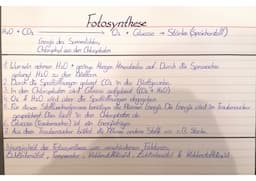 Fotosynthese
H₂O + CO₂ → O₂ + Glucose → Stärke (Speicherstoff)
Energie des Sonnenlichtes,
Chlorophyll aus den Chloroplasten
1. Wurzeln nehmen H₂O + geringe Mengen Mineralsalze auf. Durch die Sprossachse
gelangt H₂O zu den Blättern.
2. Durch die Spaltöffnungen gelangt CO₂ in die Blattspreite.
3. In den Chloroplasten wird Glucose aufgebaut (CO₂ + H₂O)
4. O₂ & H₂O wird über die Spaltöffnungen abgegeben.
5. Für diesen Stoffwechselprozess benötigt die Pflanze Energie. Die Energie wird im Traubenzucker
gespeichert. Dies läuft in den Chloroplasten ab.
6. Glucose (Traubenzucker) ist ein Energieträger.
7. Aus dem Traubenzucker bildet die Pflanze andere Stoffe wie z.B. Stärke.
Abhängigkeit der Fotosynthese von verschiedenen Faktoren:
Lichtintensität, Temperatur, Kohlenstoffdioxid, Lichtintensität & Kohlenstoffdioxid